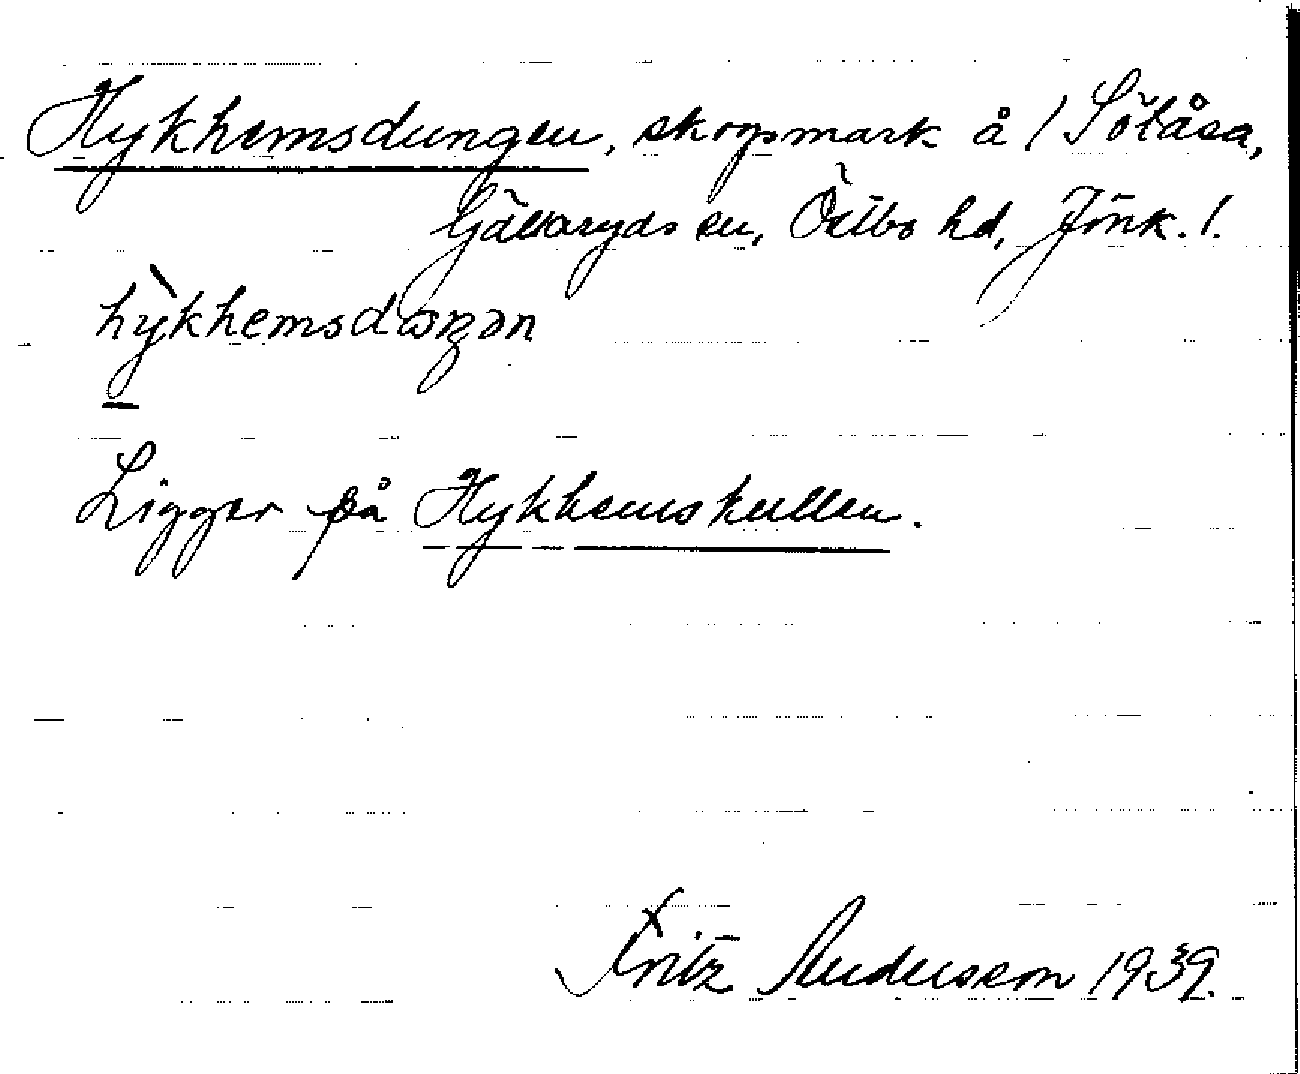 Hykhemsdungen, skogsmark å 1 Sötåsa,
Gällaryds sn, Östbo hd, Jönk. l.
hỳ̠khemsdɷŋən
Ligger på Hykhemskullen.
Fritz Andersson 1939.